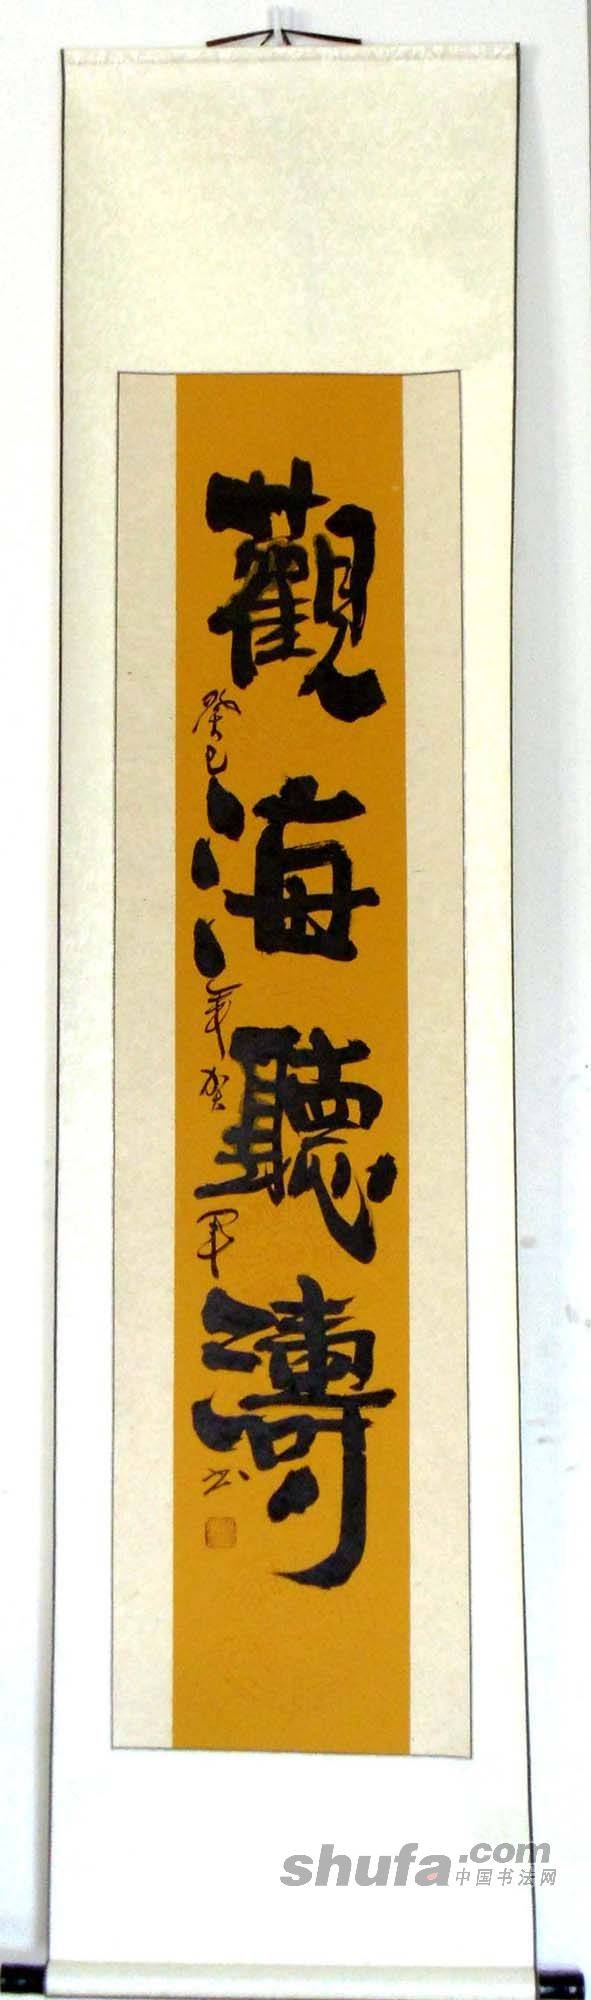 觀海聽濤
癸巳年贺軍书
shufa.com
中国书法网